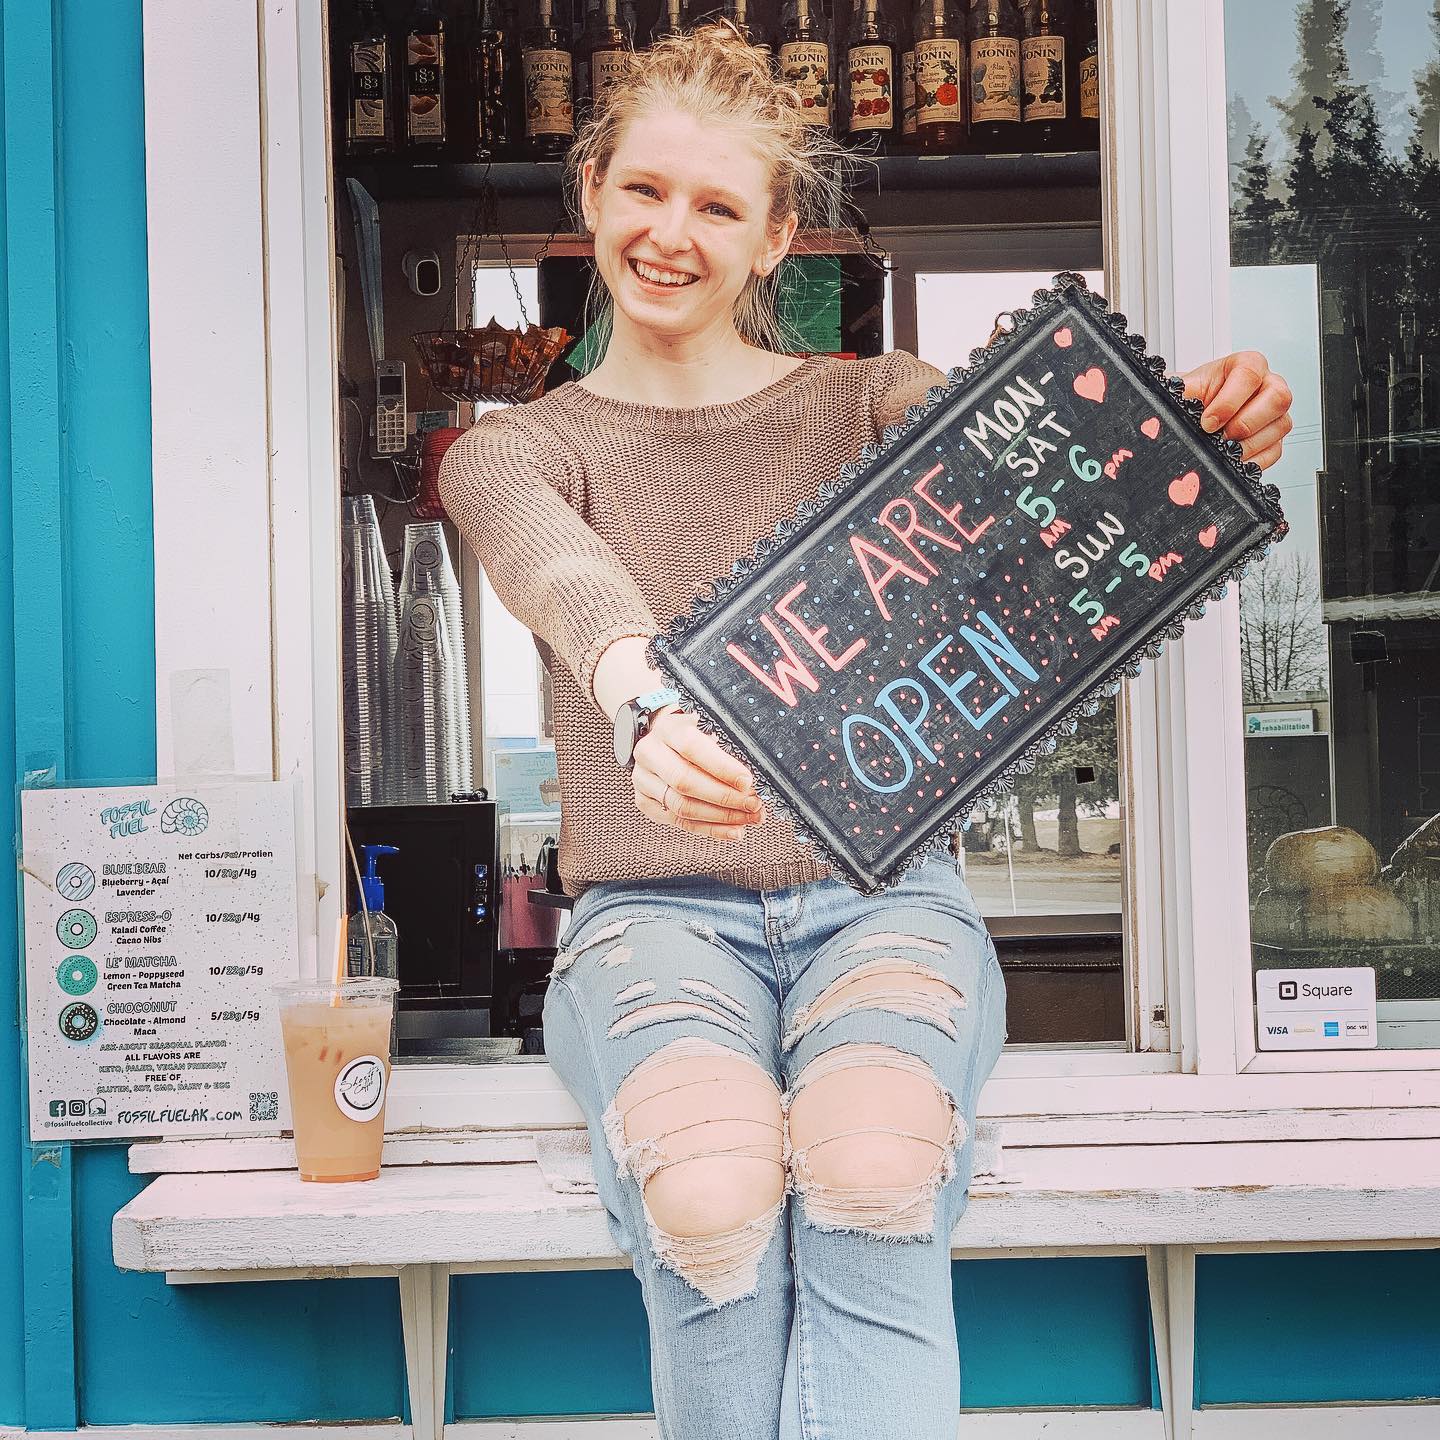 WE ARE
OPEN
MON-
SAT
5-6
AM PM
SUN
5-5
AM PM
1883
1883
MONIN
MONIN
MONIN
MONIN
MONIN
MONIN
MONIN
FOSSIL
FUEL
Net Carbs/Fat/Protien
BLUE BEAR
10/21g/4g
Blueberry - Açaí
Lavender
ESPRESS-O
10/22g/4g
Kaladi Coffee
Cacao Nibs
LE' MATCHA
10/22g/5g
Lemon - Poppyseed
Green Tea Matcha
CHOCONUT
5/23g/5g
Chocolate - Almond
Maca
ASK ABOUT SEASONAL FLAVOR
ALL FLAVORS ARE
KETO, PALEO, VEGAN FRIENDLY
FREE OF
GLUTEN, SOY, GMO, DAIRY & EGG
FOSSILFUELAK.COM
@fossilfuelcollective
central peninsula
rehabilitation
Square
VISA